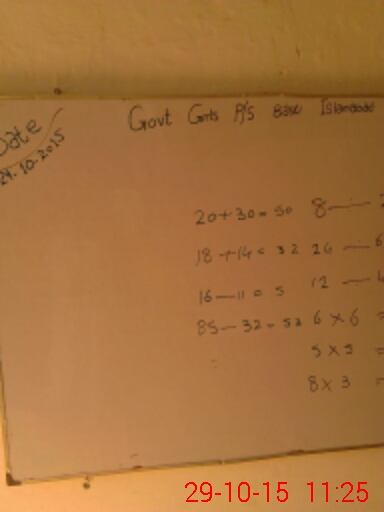 Date
29-10-2015
Govt Girls P/S Islamabad
20+30=50 8—
18+14=32 26 — 6
16—11=5 12 — 4
85—32=53 6×6 =
5×5 =
8×3 =
29-10-15 11:25